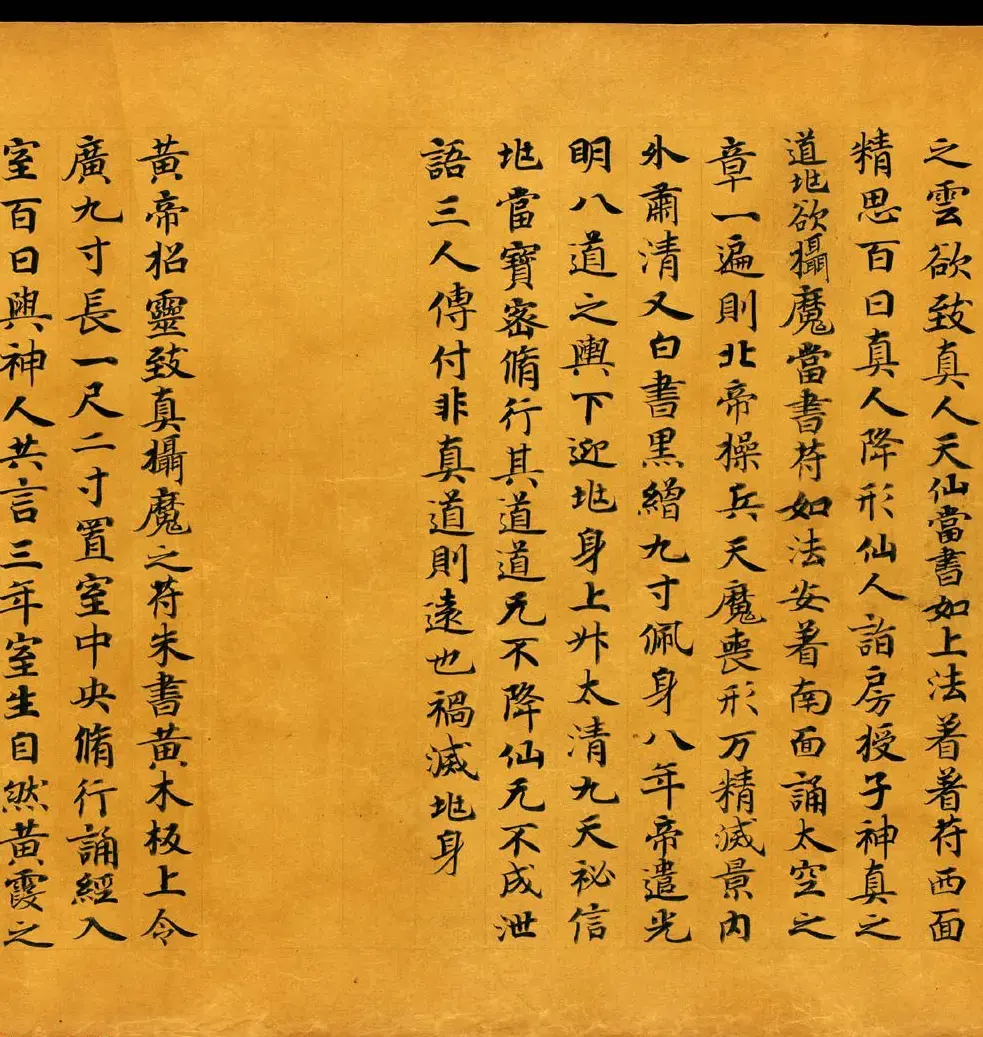 之雲欲致真人天仙當書如上法着着苻西面
精思百日真人降形仙人詣房授子神真之
道也欲攝魔當書苻如法安着南面誦太空之
章一遍則北帝操兵天魔喪形万精滅景内
外肅清又白書黑繒九寸佩身八年帝遣光
明八道之輿下迎也身上升太清九天祕信
也當寶密脩行其道道无不降仙无不成泄
語三人傳付非真道則遠也禍滅也身
黃帝招靈致真攝魔之苻朱書黃木板上令
廣九寸長一尺二寸置室中央脩行誦經入
室百日與神人共言三年室生自然黃霞之